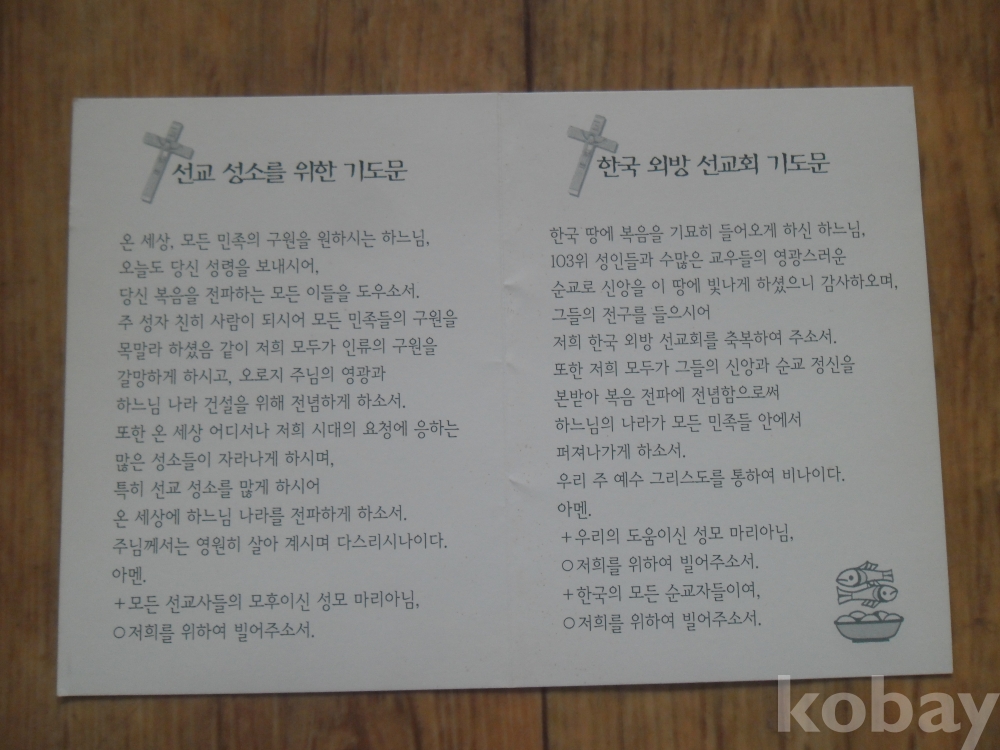 선교 성소를 위한 기도문
온 세상, 모든 민족의 구원을 원하시는 하느님,
오늘도 당신 성령을 보내시어,
당신 복음을 전파하는 모든 이들을 도우소서.
주 성자 친히 사람이 되시어 모든 민족들의 구원을
목말라 하셨음 같이 저희 모두가 인류의 구원을
갈망하게 하시고, 오로지 주님의 영광과
하느님 나라 건설을 위해 전념하게 하소서.
또한 온 세상 어디서나 저희 시대의 요청에 응하는
많은 성소들이 자라나게 하시며,
특히 선교 성소를 많게 하시어
온 세상에 하느님 나라를 전파하게 하소서.
주님께서는 영원히 살아 계시며 다스리시나이다.
아멘.
+모든 선교사들의 모후이신 성모 마리아님,
○저희를 위하여 빌어주소서.
한국 외방 선교회 기도문
한국 땅에 복음을 기묘히 들어오게 하신 하느님,
103위 성인들과 수많은 교우들의 영광스러운
순교로 신앙을 이 땅에 빛나게 하셨으니 감사하오며,
그들의 전구를 들으시어
저희 한국 외방 선교회를 축복하여 주소서.
또한 저희 모두가 그들의 신앙과 순교 정신을
본받아 복음 전파에 전념함으로써
하느님의 나라가 모든 민족들 안에서
퍼져나가게 하소서.
우리 주 예수 그리스도를 통하여 비나이다.
아멘.
+우리의 도움이신 성모 마리아님,
○저희를 위하여 빌어주소서.
+한국의 모든 순교자들이여,
○저희를 위하여 빌어주소서.
kobay